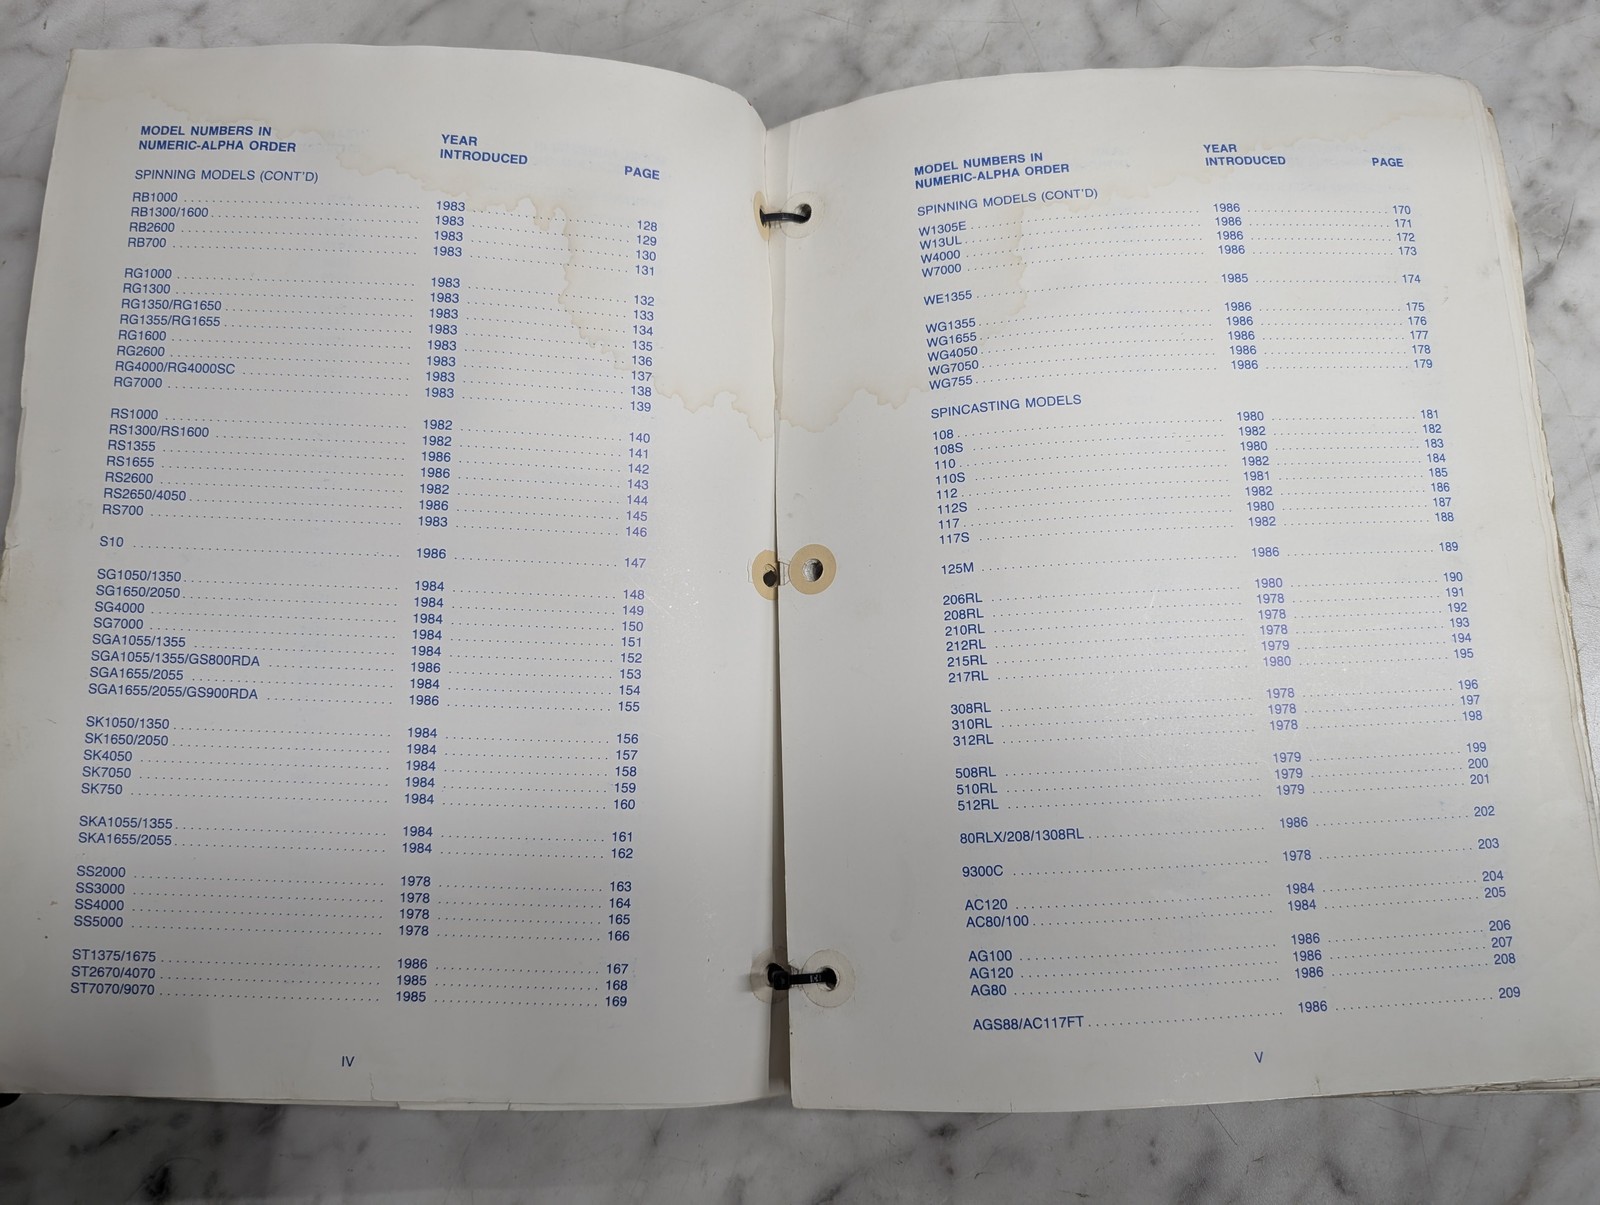 MODEL NUMBERS IN
NUMERIC-ALPHA ORDER
YEAR
INTRODUCED
PAGE
SPINNING MODELS (CONT'D)
RB1000 1983 128
RB1300/1600 1983 129
RB2600 1983 130
RB700 1983 131
RG1000 1983 132
RG1300 1983 133
RG1350/RG1650 1983 134
RG1355/RG1655 1983 135
RG1600 1983 136
RG2600 1983 137
RG4000/RG4000SC 1983 138
RG7000 1983 139
RS1000 1982 140
RS1300/RS1600 1982 141
RS1355 1986 142
RS1655 1986 143
RS2600 1982 144
RS2650/4050 1986 145
RS700 1983 146
S10 1986 147
SG1050/1350 1984 148
SG1650/2050 1984 149
SG4000 1984 150
SG7000 1984 151
SGA1055/1355 1984 152
SGA1055/1355/GS800RDA 1986 153
SGA1655/2055 1984 154
SGA1655/2055/GS900RDA 1986 155
SK1050/1350 1984 156
SK1650/2050 1984 157
SK4050 1984 158
SK7050 1984 159
SK750 1984 160
SKA1055/1355 1984 161
SKA1655/2055 1984 162
SS2000 1978 163
SS3000 1978 164
SS4000 1978 165
SS5000 1978 166
ST1375/1675 1986 167
ST2670/4070 1985 168
ST7070/9070 1985 169
IV
MODEL NUMBERS IN
NUMERIC-ALPHA ORDER
YEAR
INTRODUCED
PAGE
SPINNING MODELS (CONT'D)
W1305E 1986 170
W13UL 1986 171
W4000 1986 172
W7000 1986 173
WE1355 1985 174
WG1355 1986 175
WG1655 1986 176
WG4050 1986 177
WG7050 1986 178
WG755 1986 179
SPINCASTING MODELS
108 1980 181
108S 1982 182
110 1980 183
110S 1982 184
112 1981 185
112S 1982 186
117 1980 187
117S 1982 188
125M 1986 189
206RL 1980 190
208RL 1978 191
210RL 1978 192
212RL 1978 193
215RL 1979 194
217RL 1980 195
308RL 1978 196
310RL 1978 197
312RL 1978 198
508RL 1979 199
510RL 1979 200
512RL 1979 201
80RLX/208/1308RL 1986 202
9300C 1978 203
AC120 1984 204
AC80/100 1984 205
AG100 1986 206
AG120 1986 207
AG80 1986 208
AGS88/AC117FT 1986 209
V